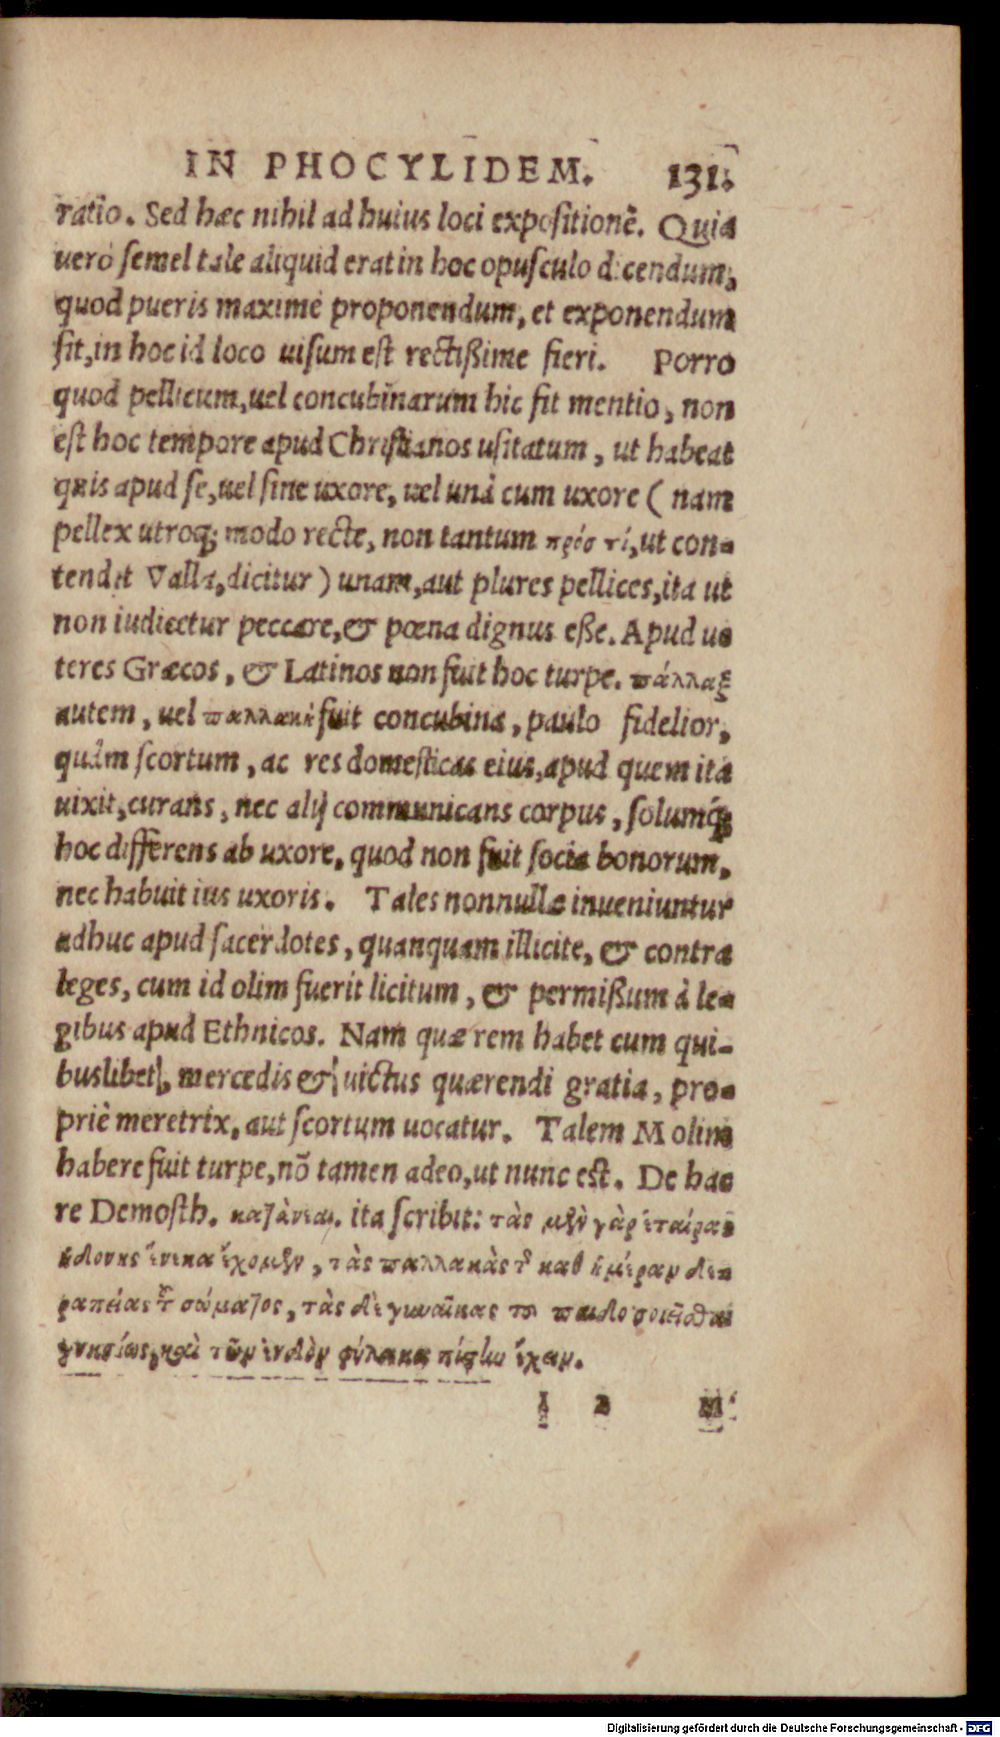 IN PHOCYLIDEM. 131.
ratio. Sed hæc nihil ad huius loci expositionē. Quia
uero semel tale aliquid erat in hoc opusculo dicendum,
quod pueris maximè proponendum, et exponendum
sit, in hoc id loco uisum est rectißime fieri. Porro
quod pellicum, uel concubinarum hic fit mentio, non
est hoc tempore apud Christianos usitatum, ut habeat
quis apud se, uel sine uxore, uel unà cum uxore (nam
pellex utroq; modo recte, non tantum πρός τί, ut con-
tendit Valla, dicitur) unam, aut plures pellices, ita ut
non iudicetur peccare, & pœna dignus eße. Apud ue
teres Græcos, & Latinos non fuit hoc turpe. πάλλαξ
autem, uel παλλακὴ fuit concubina, paulo fidelior,
quàm scortum, ac res domesticas eius, apud quem ita
uixit, curans, nec alij communicans corpus, solumq́;
hoc differens ab uxore, quod non fuit socia bonorum,
nec habuit ius uxoris. Tales nonnullæ inueniuntur
adhuc apud sacerdotes, quanquam illicite, & contra
leges, cum id olim fuerit licitum, & permißum à le-
gibus apud Ethnicos. Nam quæ rem habet cum qui-
buslibet, mercedis & uictus quærendi gratia, pro-
priè meretrix, aut scortum uocatur. Talem M olim
habere fuit turpe, nō tamen adeo, ut nunc est. De hac
re Demosth. ita scribit: τὰς μὲν γὰρ ἑταίρας
ἡδονῆς ἕνεκα ἔχομεν, τὰς παλλακὰς τ͂ καθ ἡμέραν θε
ραπείας τ͂ σώματος, τὰς δὲ γυναῖκας τ͂ παιδοποιεῖσθαι
γνησίως, καὶ τῶν ἔνδον φύλακα πίστην ἔχειν.
I 2
Digitalisierung gefördert durch die Deutsche Forschungsgemeinschaft - DFG